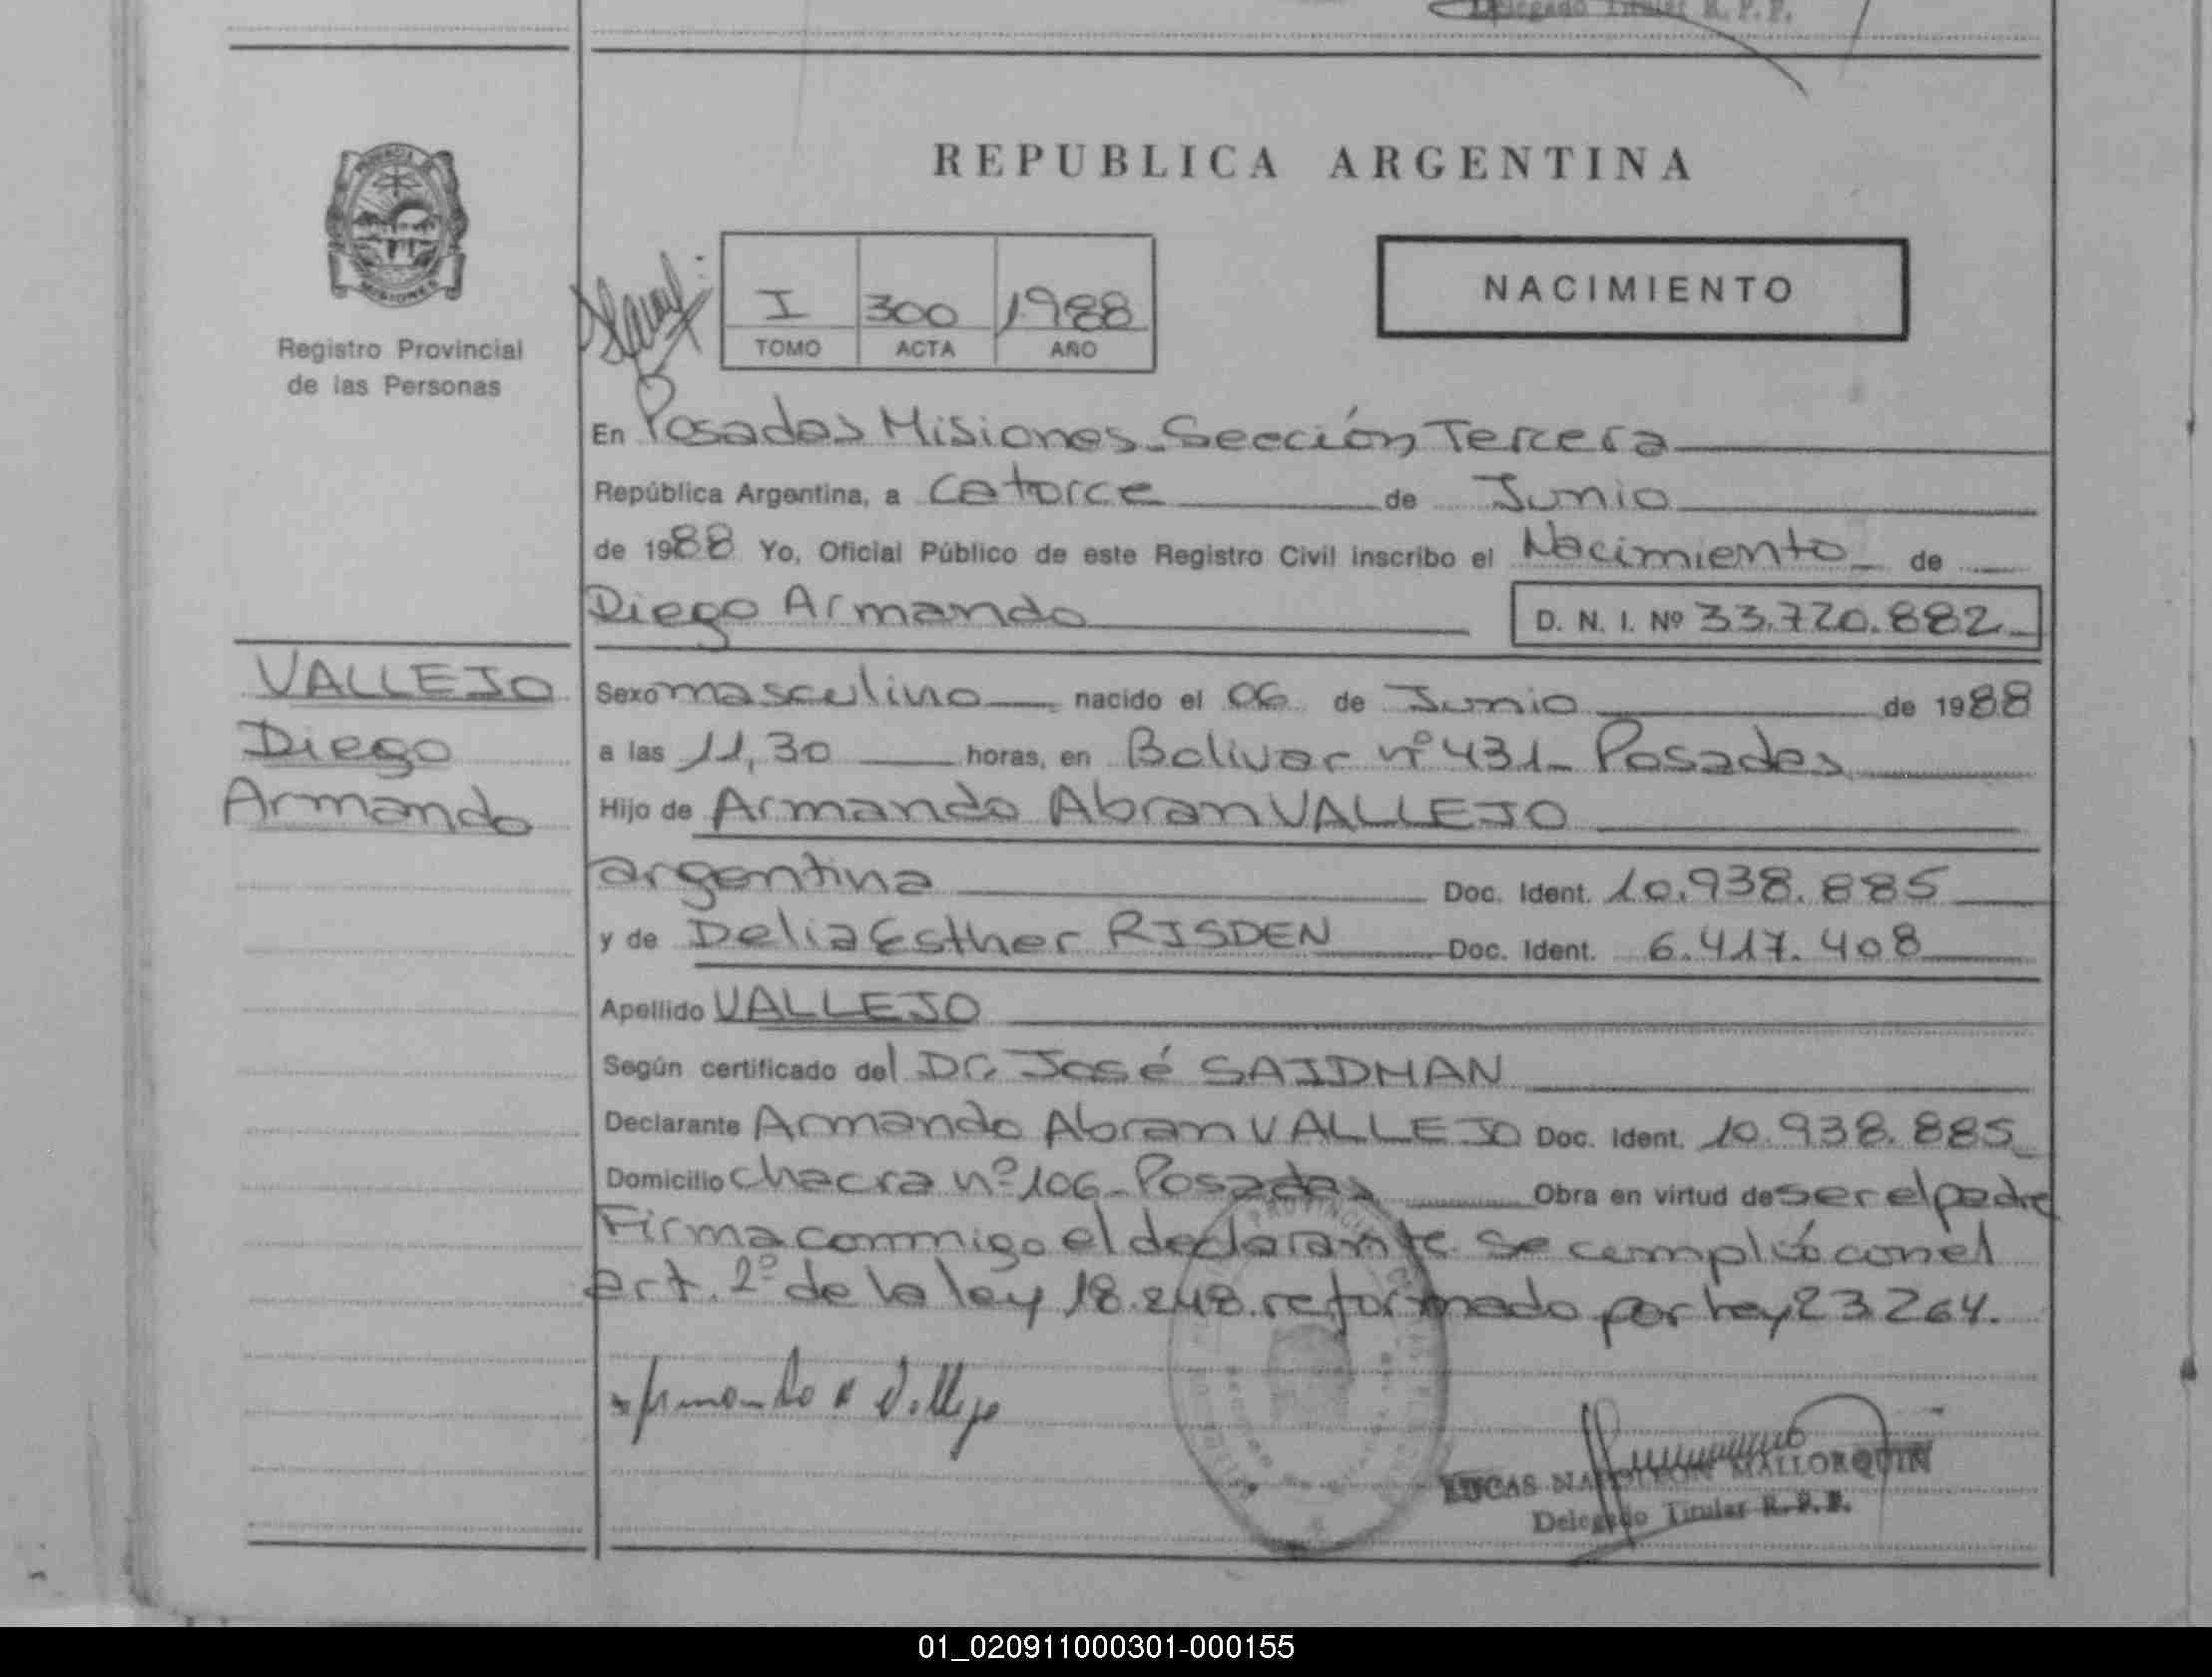 Delegado Titular R. P. P.
REPUBLICA ARGENTINA
MISIONES
Registro Provincial
de las Personas
I 300 1988
TOMO ACTA AÑO
NACIMIENTO
En Posadas Misiones - Sección Tercera
República Argentina, a Catorce de Junio
de 1988 Yo, Oficial Público de este Registro Civil inscribo el Nacimiento de
Diego Armando D. N. I. Nº 33.720.882
VALLEJO
Diego
Armando
Sexo masculino nacido el 06 de Junio de 1988
a las 11,30 horas, en Bolivar nº 431 - Posadas
Hijo de Armando Abran VALLEJO
argentina Doc. Ident. 10.938.885
y de Delia Esther RISDEN Doc. Ident. 6.417.408
Apellido VALLEJO
Según certificado del Dr. José SAIDMAN
Declarante Armando Abran VALLEJO Doc. Ident. 10.938.885
Domicilio chacra nº 106 - Posadas Obra en virtud de ser el padre
Firma conmigo el declarante se cumplió con el
art. 2º de la ley 18.248 reformado por ley 23264.
Armando A Vallejo
LUCAS NAPOLEON MALLORQUIN
Delegado Titular R. P. P.
01_020911000301-000155